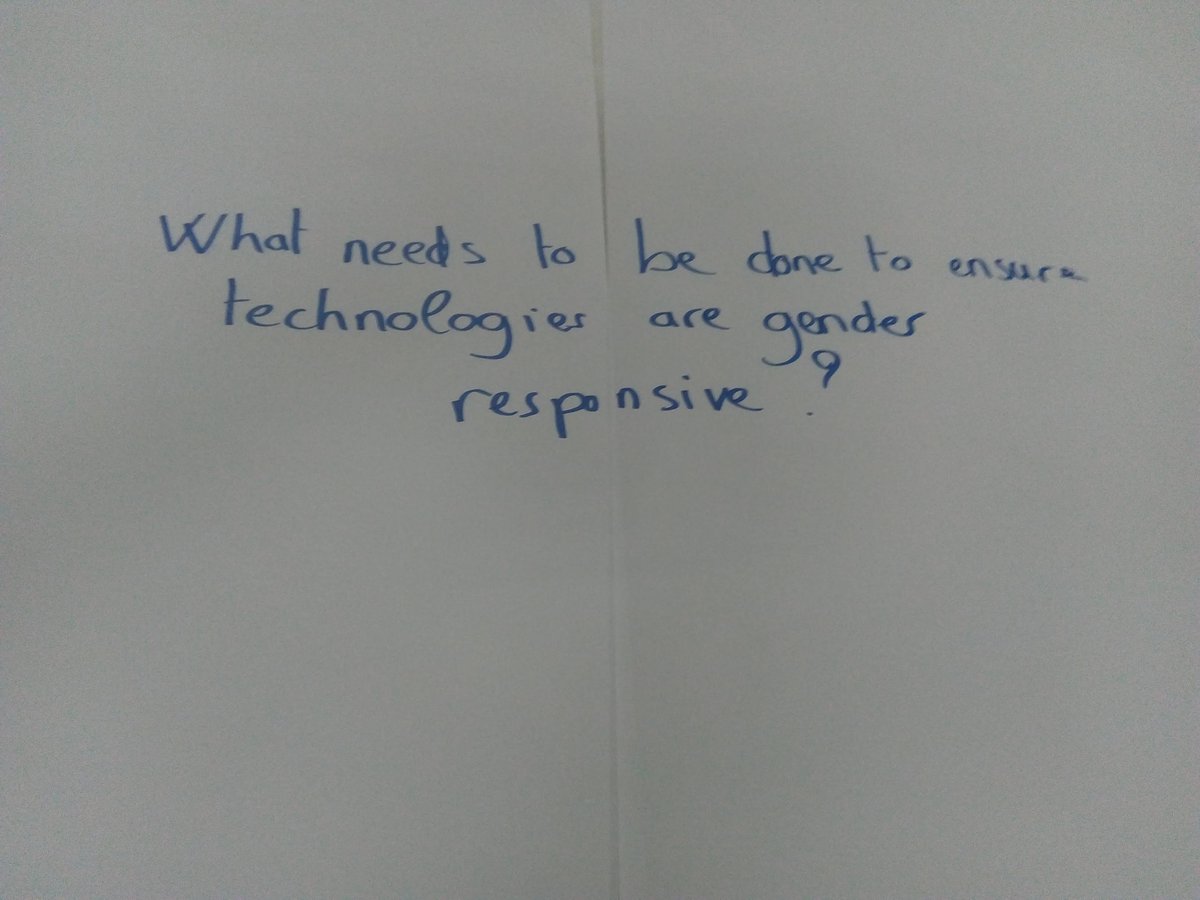 What needs to be done to ensure
technologies are gender
responsive ?